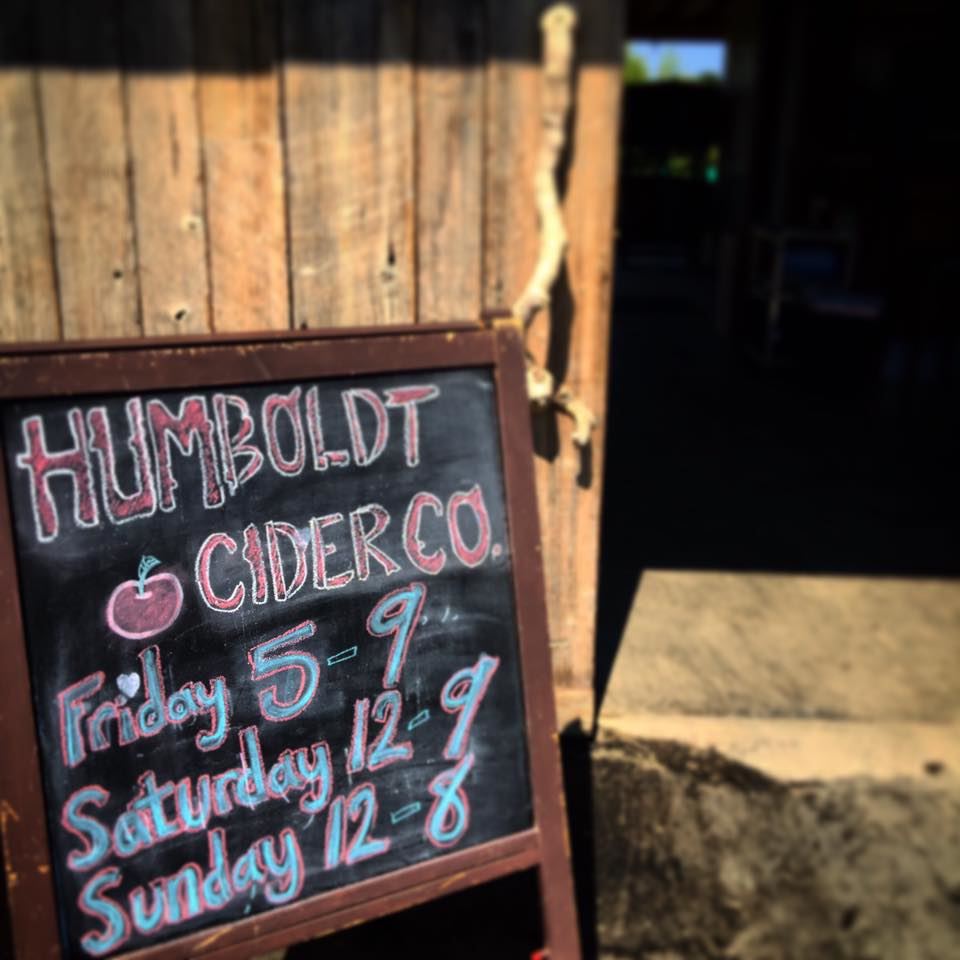 HUMBOLDT
CIDER CO.
Friday 5-9
Saturday 12-9
Sunday 12-8